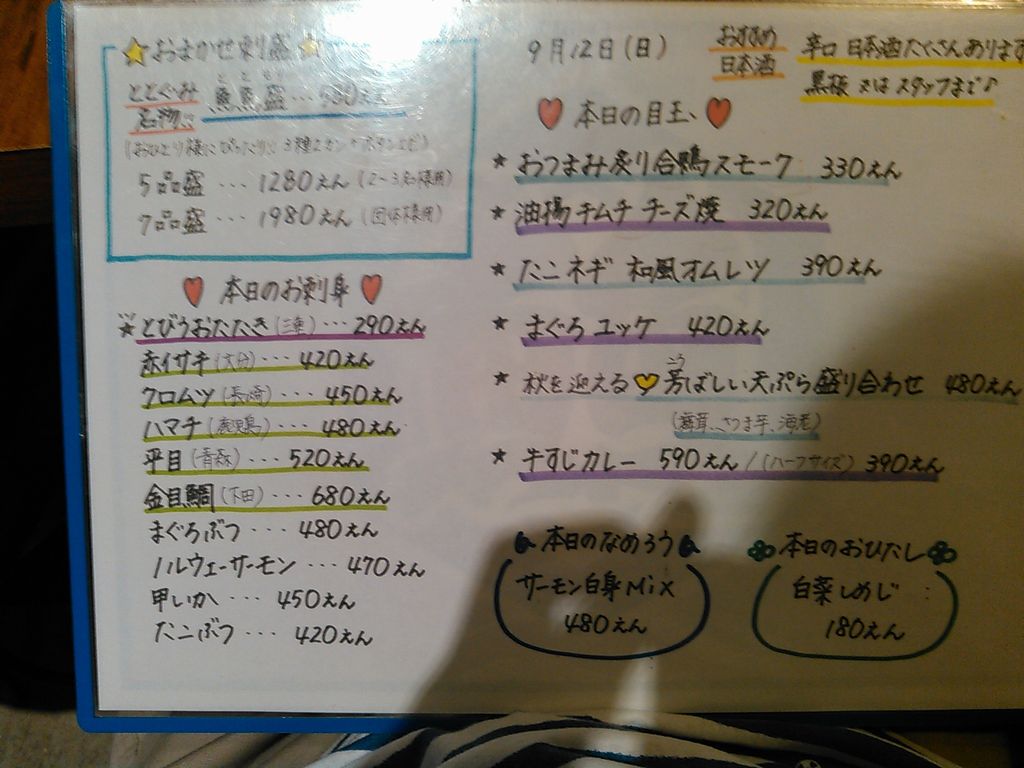 おまかせ刺盛
ととぐみ
名物!!
魚魚盛・・・580えん
(おひとり様にぴったり!! 3種2カン+ボタンエビ)
5品盛・・・1280えん(2〜3名様用)
7品盛・・・1980えん(団体様用)
本日のお刺身
とびうおたたき(三重)・・・290えん
赤イサキ(大分)・・・420えん
クロムツ(長崎)・・・450えん
ハマチ(鹿児島)・・・480えん
平目(青森)・・・520えん
金目鯛(下田)・・・680えん
まぐろぶつ・・・480えん
ノルウェーサーモン・・・470えん
甲いか・・・450えん
たこぶつ・・・420えん
9月12日(日)
おすすめ
日本酒
辛口 日本酒たくさんあります
黒板 又は スタッフまで♪
本日の目玉
おつまみ炙り合鴨スモーク 330えん
油揚チムチ チーズ焼 320えん
たこネギ 和風オムレツ 390えん
まぐろユッケ 420えん
秋を迎える 芳ばしい天ぷら盛り合わせ 480えん
(舞茸、さつま芋、海老)
牛すじカレー 590えん/(ハーフサイズ)390えん
本日のなめろう
サーモン白身MiX
480えん
本日のおひたし
白菜しめじ
180えん